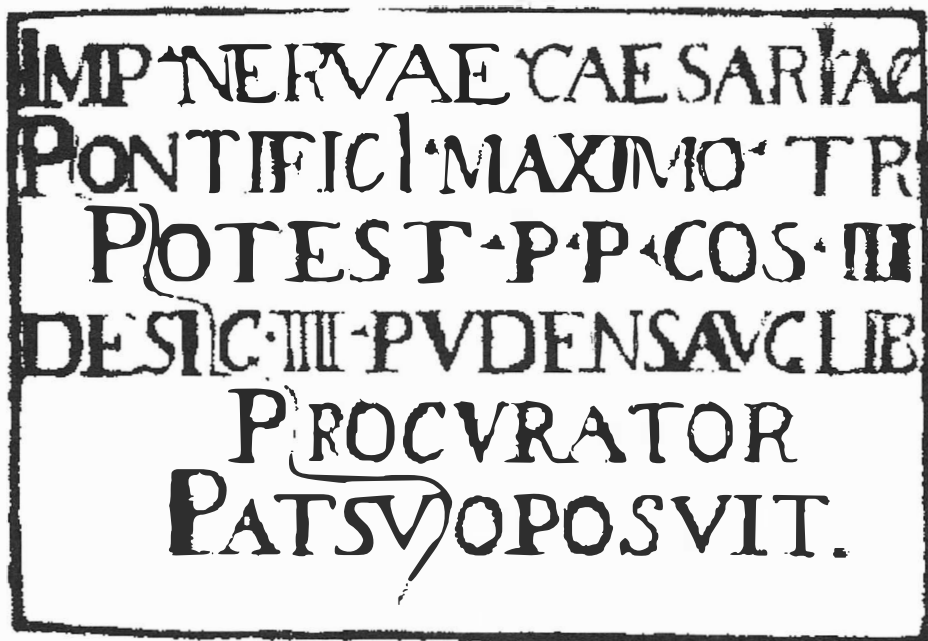 IMP·NERVAE·CAESARI·AG
PONTIFICI·MAXIMO·TR
POTEST·P·P·COS·III
DESIG·IIII·PVDENSAVGLIB
PROCVRATOR
PATSVOPOSVIT.